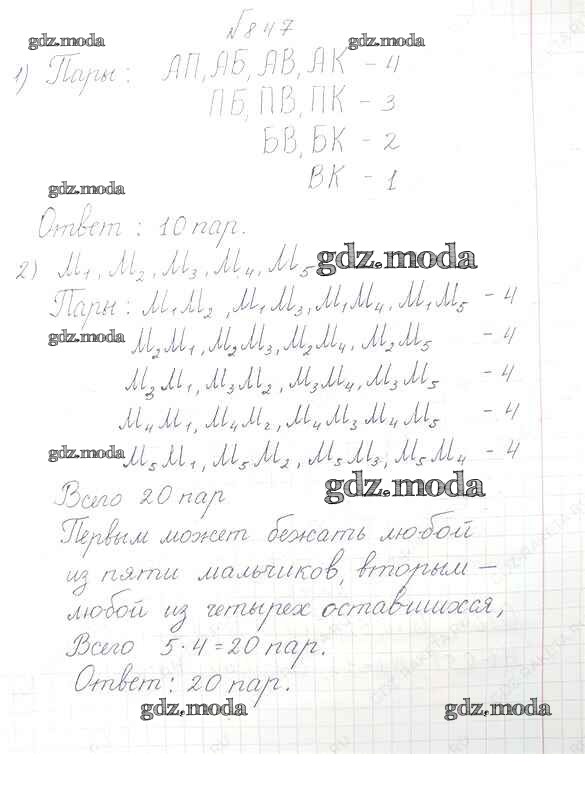 №847
gdz.moda gdz.moda
1) Пары: АП, АБ, АВ, АК - 4
ПБ, ПВ, ПК - 3
БВ, БК - 2
ВК - 1
gdz.moda
Ответ: 10 пар.
2) М₁, М₂, М₃, М₄, М₅ gdz.moda
Пары: М₁М₂, М₁М₃, М₁М₄, М₁М₅ - 4
gdz.moda М₂М₁, М₂М₃, М₂М₄, М₂М₅ - 4
М₃М₁, М₃М₂, М₃М₄, М₃М₅ - 4
М₄М₁, М₄М₂, М₄М₃ М₄М₅ - 4
gdz.moda М₅М₁, М₅М₂, М₅М₃, М₅М₄ - 4
Всего 20 пар gdz.moda
Первым может бежать любой
из пяти мальчиков, вторым –
любой из четырех оставшихся,
Всего 5·4=20 пар.
Ответ: 20 пар.
gdz.moda gdz.moda